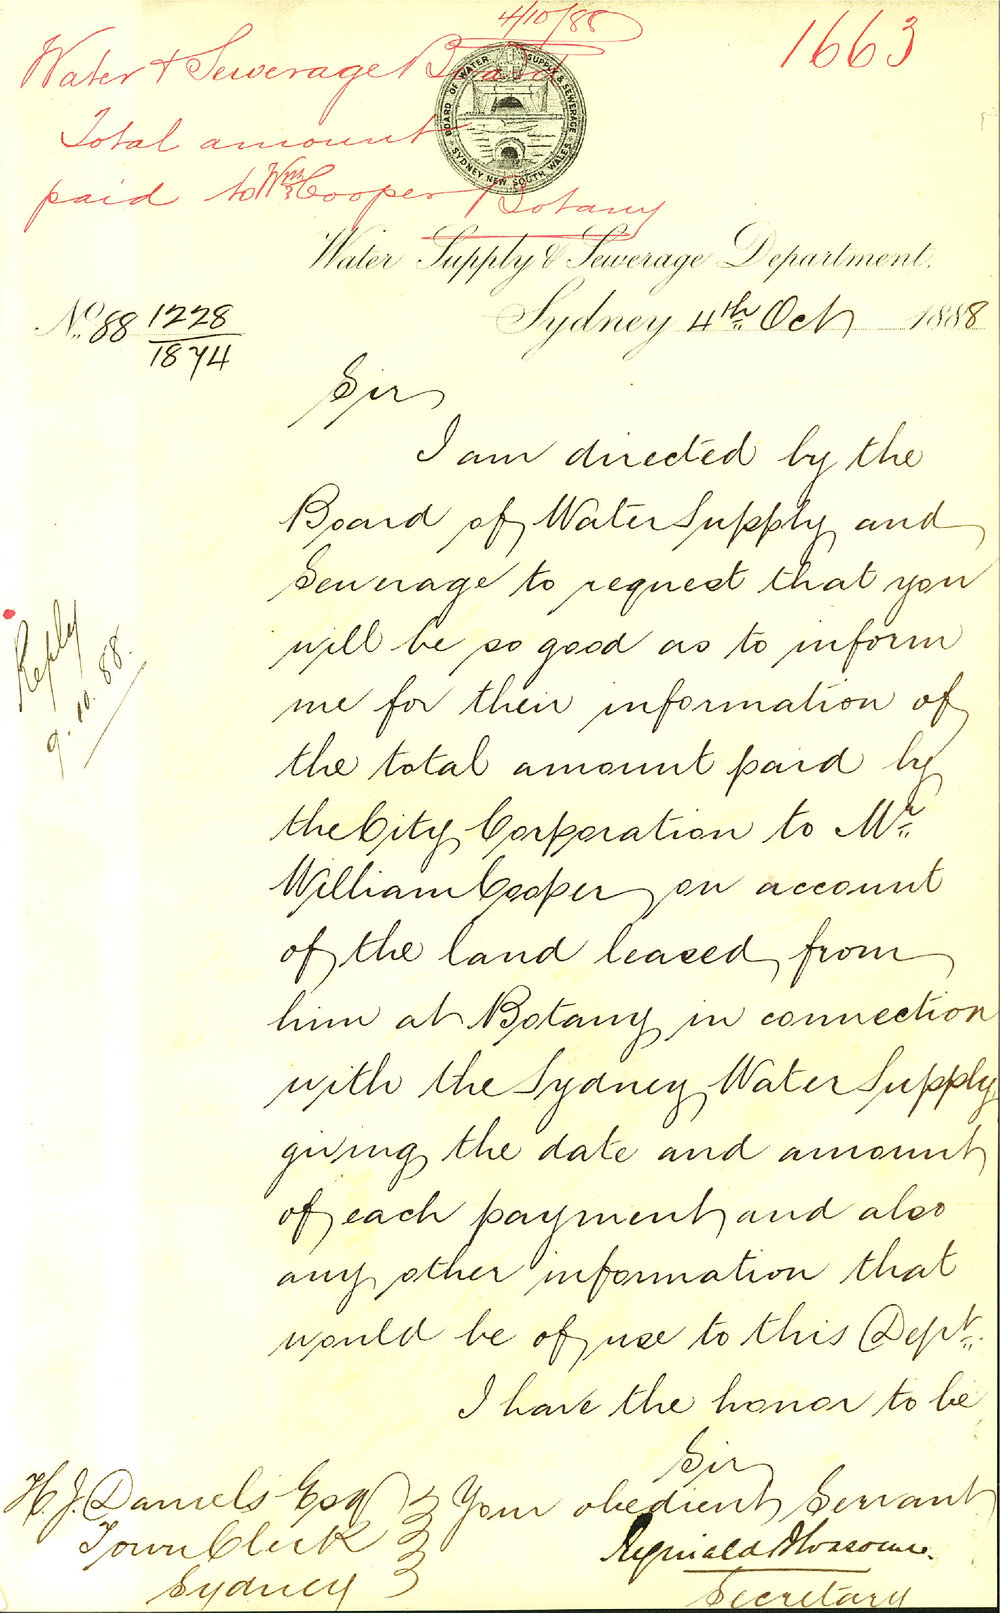 4/10/88
1663
Water & Sewerage Board
Total amount
paid to Wm Cooper Botany
BOARD OF WATER SUPPLY & SEWERAGE
SYDNEY NEW SOUTH WALES
Water Supply & Sewerage Department.
Sydney 4th Oct 1888
No. 88 1228
1874
Sir
I am directed by the
Board of Water Supply and
Sewerage to request that you
will be so good as to inform
me for their information of
the total amount paid by
the City Corporation to Mr.
William Cooper on account
of the land leased from
him at Botany in connection
with the Sydney Water Supply
giving the date and amount
of each payment and also
any other information that
would be of use to this Dept.
I have the honor to be
Sir
Your obedient Servant
Reginald
Secretary
H. J. Daniels Esq
Town Clerk
Sydney
Reply
9.10.88.